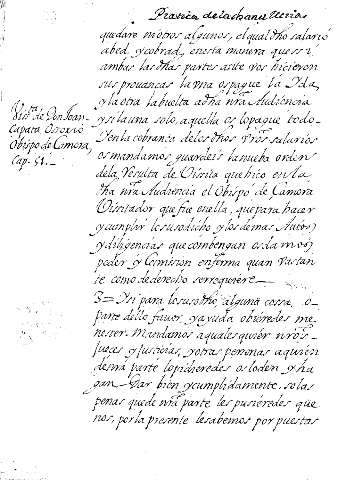 Practica de la chancilleria
quedare ni otros algunos, el qual dho salario
abed, y cobrad, en esta manera que si
ambas las dhas partes ante vos hicieron
sus prouanças la vna os pague la Ida,
y la otra la buelta a dha nra Audiencia
y si la una solo, aquella os lo pague todo
Yen la cobrança de los dhos vros salarios
os mandamos guardeis la nueba orden
de la Vesulta de Visita que hiço en la
dha nra Audiencia el Obispo de Çamora
Visitador que fue en ella, que para hacer
y cumplir lo susodicho, y los demas Autos,
y diligencias que combengan os damos
poder y Comision en forma quan bastan
te como de derecho se requiere
Visita de Don Joan
Çapata Osorio
Obispo de Çamora,
Cap. 51.
3= I si para lo susodho alguna cossa, o
parte de llo fauor, y ayuda obieredes me
nester. Mandamos a qualesquier nros
Jueces y Justicias, y otras personas a quien
de nra parte lo pidieredes os lo den y ha
gan dar bien y cumplidamente. so las
penas que de nra parte les pusieredes que
nos, por la presente les abemos por puestas